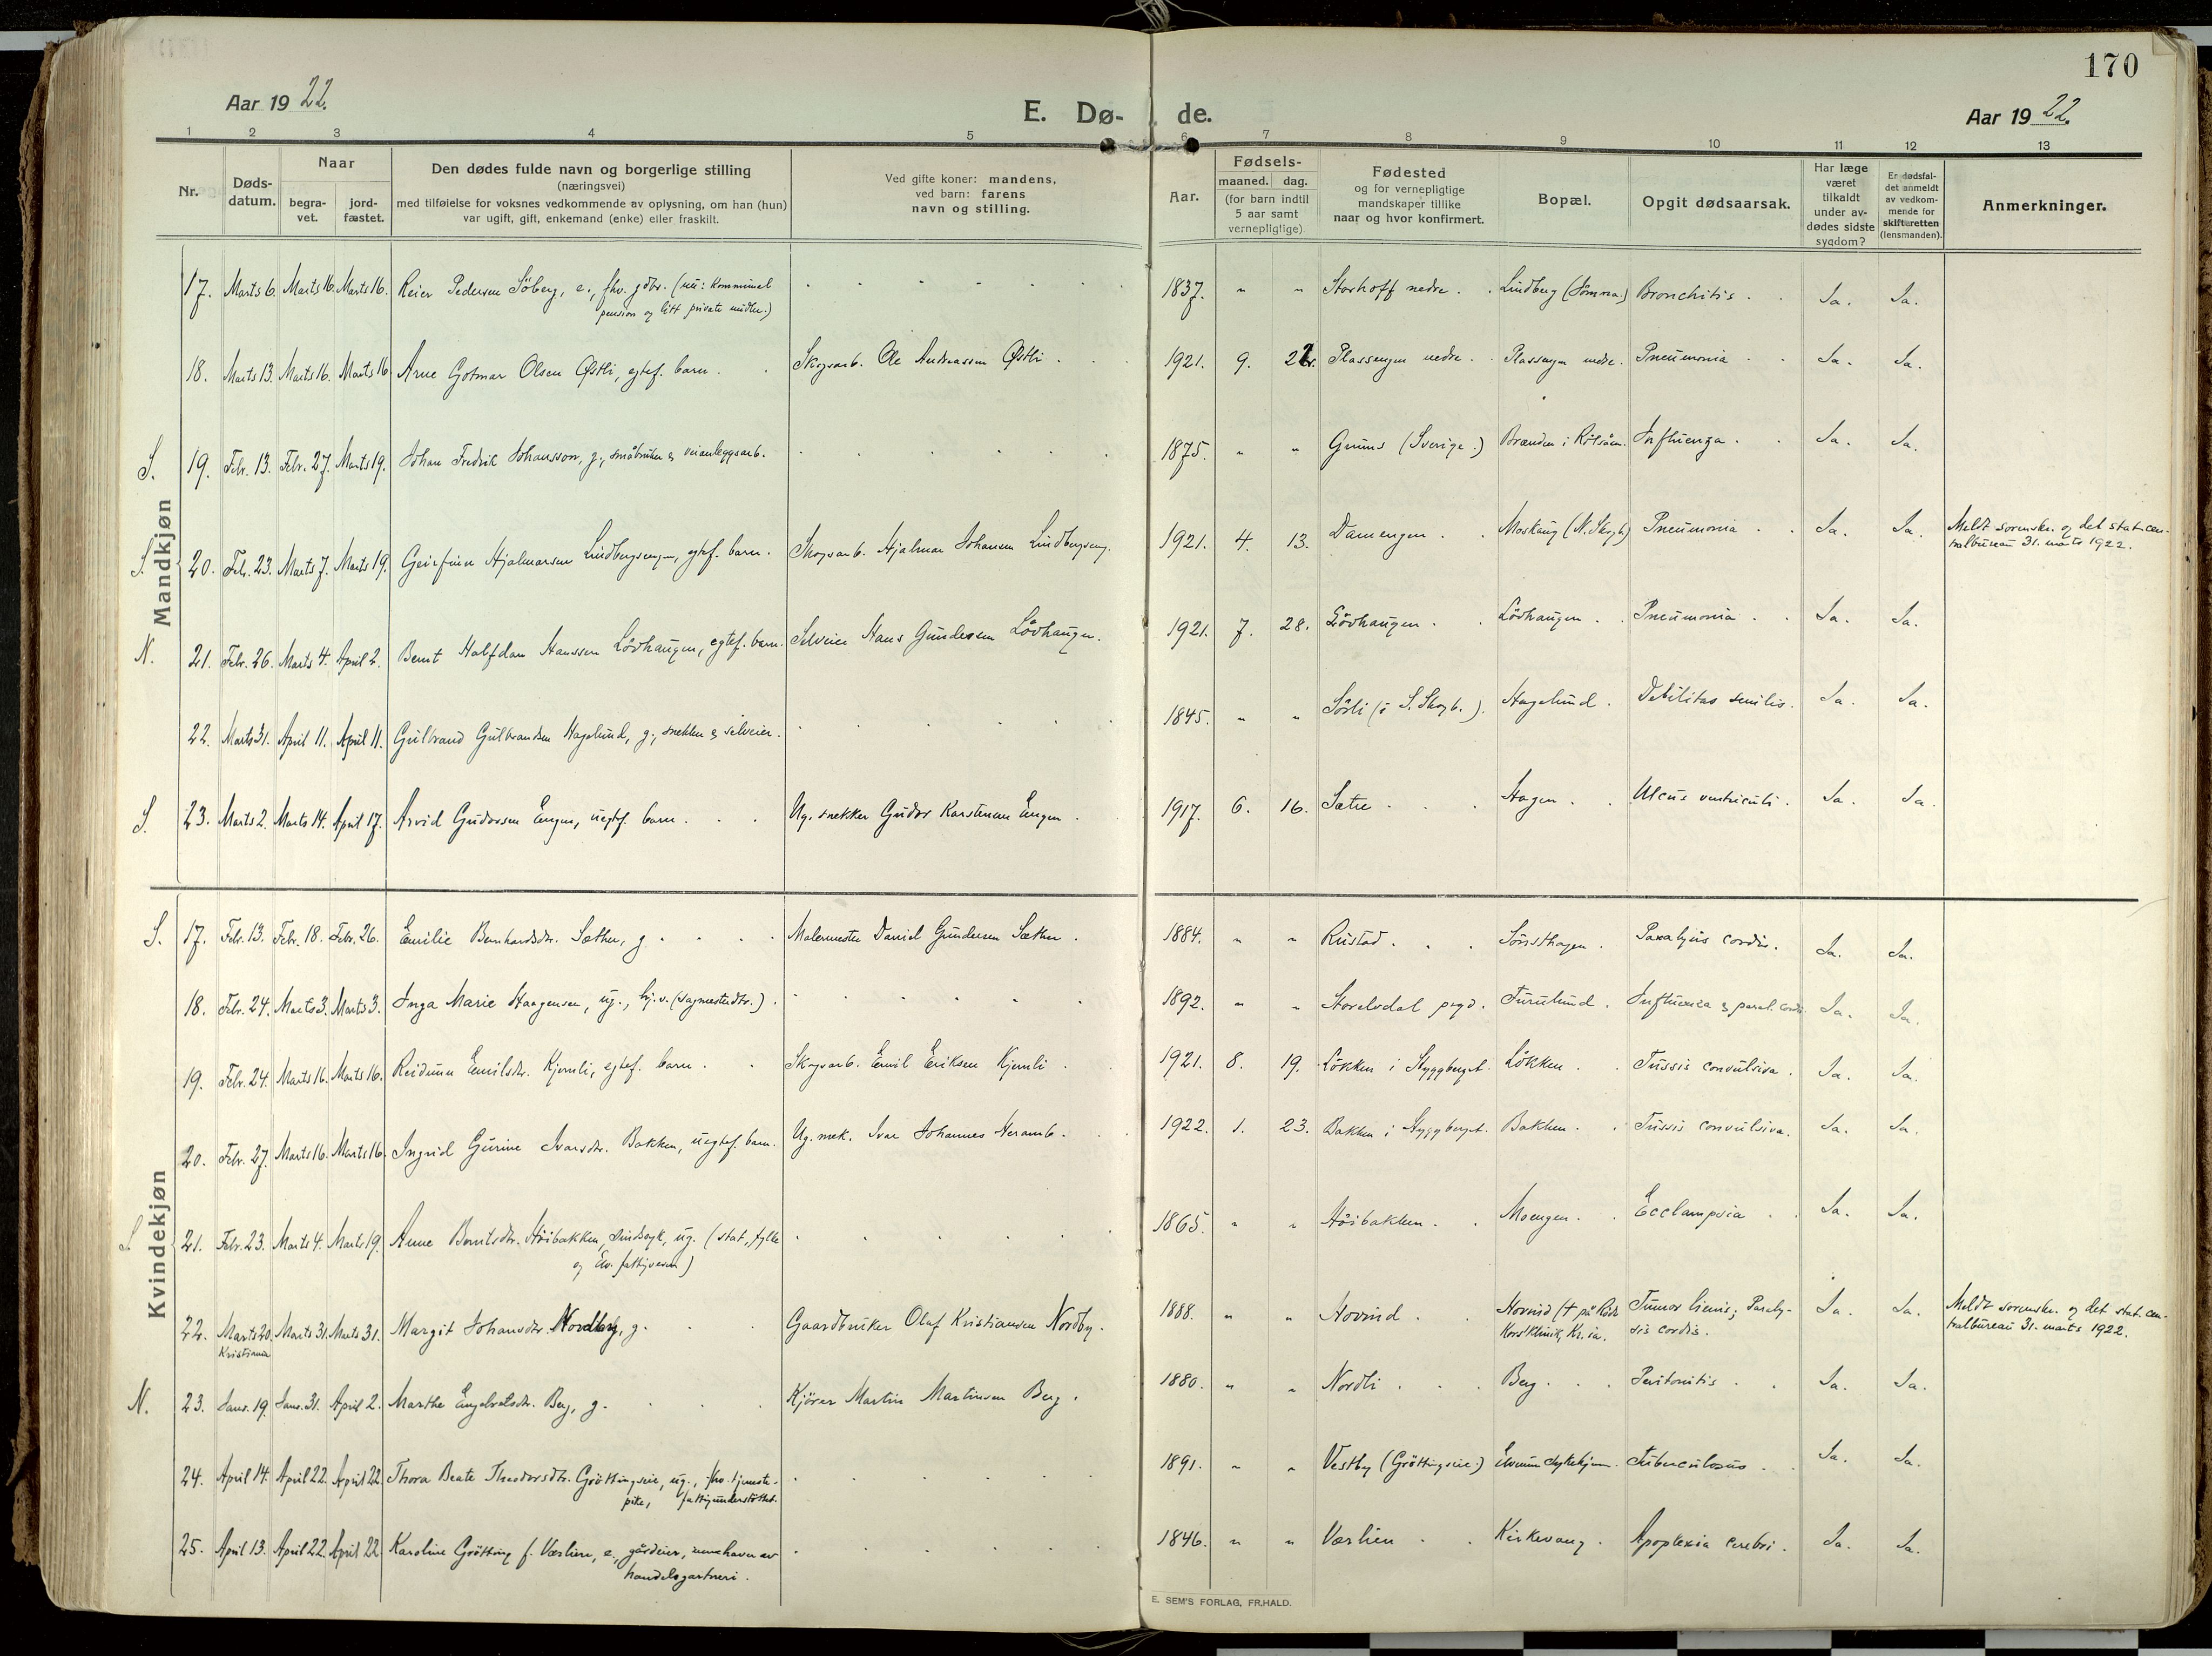 170
Aar 19 22.
E. Dø- de.
Aar 19 22.
1 2 3 4 5 6 7 8 9 10 11 12 13
Nr.
Døds-
datum.
Naar
begra-
vet.
jord-
fæstet.
Den dødes fulde navn og borgerlige stilling
(næringsvei)
med tilføielse for voksnes vedkommende av oplysning, om han (hun)
var ugift, gift, enkemand (enke) eller fraskilt.
Ved gifte koner: mandens,
ved barn: farens
navn og stilling.
Aar.
Fødsels-
maaned. dag.
(for barn indtil
5 aar samt
vernepligtige)
Fødested
og for vernepligtige
mandskaper tillike
naar og hvor konfirmert.
Bopæl.
Opgit dødsaarsak.
Har læge
været
tilkaldt
under av-
dødes sidste
sygdom?
Er dødsfal-
det anmeldt
av vedkom-
mende for
skifteretten
(lensmanden).
Anmerkninger.
Mandkjøn
17. Marts 6. Marts 16. Marts 16. Reier Pedersen Söberg, e., fhv. gdbr. (nu: kommunal
pension og litt private midler.)
1837. " " Storhoff nedre. Lindberg (Sömna.) Bronchitis. Ja. Ja.
18. Marts 13. Marts 16. Marts 16 Arne Gotmar Olsen Østli, egtef. barn. Skogsarb. Ole Andreassen Østli.
1921. 9. Plassengen nedre. Plassengen nedre. Pneumonia Ja. Ja.
S. 19. Febr. 13. Febr. 27. Marts 19. Johan Fredrik Johansson, g., småbruker & veianleggsarb.
1875. " " Grums (Sverige.) Brænden i Influenza. Ja. Ja.
S. 20. Feb. 23. Marts 7. Marts 19. Geirfinn Hjalmarsen Lindbergsengen, egtef. barn. Skogsarb. Hjalmar Johansen Lindbergseng.
1921. 4. 13. Damengen. Moskaug (N. Skogb.) Pneumonia Ja. Ja. Meldt sorenskr. og det stat. cen-
tralbureau 31. marts 1922.
N. 21. Febr. 26. Marts 4. April 2. Bernt Halfdan Hanssen Lövhaugen, egtef. barn. Selveier Hans Gundersen Lövhaugen.
1921. 7. 28. Lövhaugen. Lövhaugen. Pneumonia. Ja. Ja.
22. Marts 31. April 11. April 11. Gulbrand Gulbrandsen Hagelund, g., snekker & selveier.
1845. " " Sörli (i S. Skogb.). Hagelund. Debilitas senilis. Ja. Ja.
S. 23. Marts 2. Marts 14. April 17. Arvid Gudorsen Engen, uegtf. barn. Ug. snekker Gudor Karstensen Engen.
1917. 6. 16. Sætre. Hagen. Ulcus ventriculi. Ja. Ja.
Kvindekjøn
S. 17. Febr. 13. Febr. 18. Febr. 26. Emilie Bernhardsdr. Sæther, g. Malermester Daniel Gundersen Sæther.
1884. " " Rustad. Paralysis cordis. Ja. Ja.
18. Febr. 24. Marts 3. Marts 3. Inga Marie Haagensen, ug., hj.v. (sagmesterdtr.).
1892. " " Storelvdal prgd. Furulund. Influenza & paral. cordis. Ja. Ja.
19. Febr. 24. Marts 16. Marts 16. Reidunn Emilsdr. Kjernli, egtef. barn. Skogsarb. Emil Eriksen Kjernli
1921. 8. 19. Lökken i Styggberget. Lökken. Tussis convulsiva. Ja. Ja.
20. Febr. 27. Marts 16. Marts 16. Ingrid Gurine Ivarsdr. Bakken, uegtef. barn. Ug. mek. Ivar Johannes Heramb.
1922. 1. 23. Bakken i Styggberget. Bakken. Tussis convulsiva. Ja. Ja.
S. 21. Febr. 23. Marts 4. Marts 19. Anne Berntsdtr. Höibakken, sindssyk, ug. (stat, fylke
og Elv. fattigvesen)
1865. " " Höibakken. Moengen. Ecclampsia Ja. Ja.
22. Marts 20. Marts 31. Marts 31. Margit Johansdtr. g. Gaardbruker Olaf Kristiansen Nordby.
Kristiania
1888. " " Hovind. Hovind († på Röde
Korsklinik, Kr.ia. Tumor lienis; Paraly-
sis cordis. Ja. Ja. Meldt sorenskr. og det stat. cen-
tralbureau 31. marts 1922.
N. 23. Janr. 19. Janr. 31. April 2. Marthe Engebretsdtr. Berg, g. Kjörer Martin Martinsen Berg.
1880. " " Nordli Berg. Peritonitis. Ja. Ja.
24. April 14. April 22. April 22. Thora Beate Theodorsdtr. Gröttingseie, ug., fhv. tjeneste-
pike, fattigunderstöttet.
1891. " " Vestby (Gröttingseie.) Elverum sykehjem. Tuberculosis. Ja. Ja.
25. April 13. April 22. April 22 Karoline Grötting f. Værlien, e., gårdeier, innehaver av
handelsgartneri.
1846. " " Værlien Kirkevang. Apoplexia cerebri. Ja. Ja.
E. SEM'S FORLAG, FR.HALD.